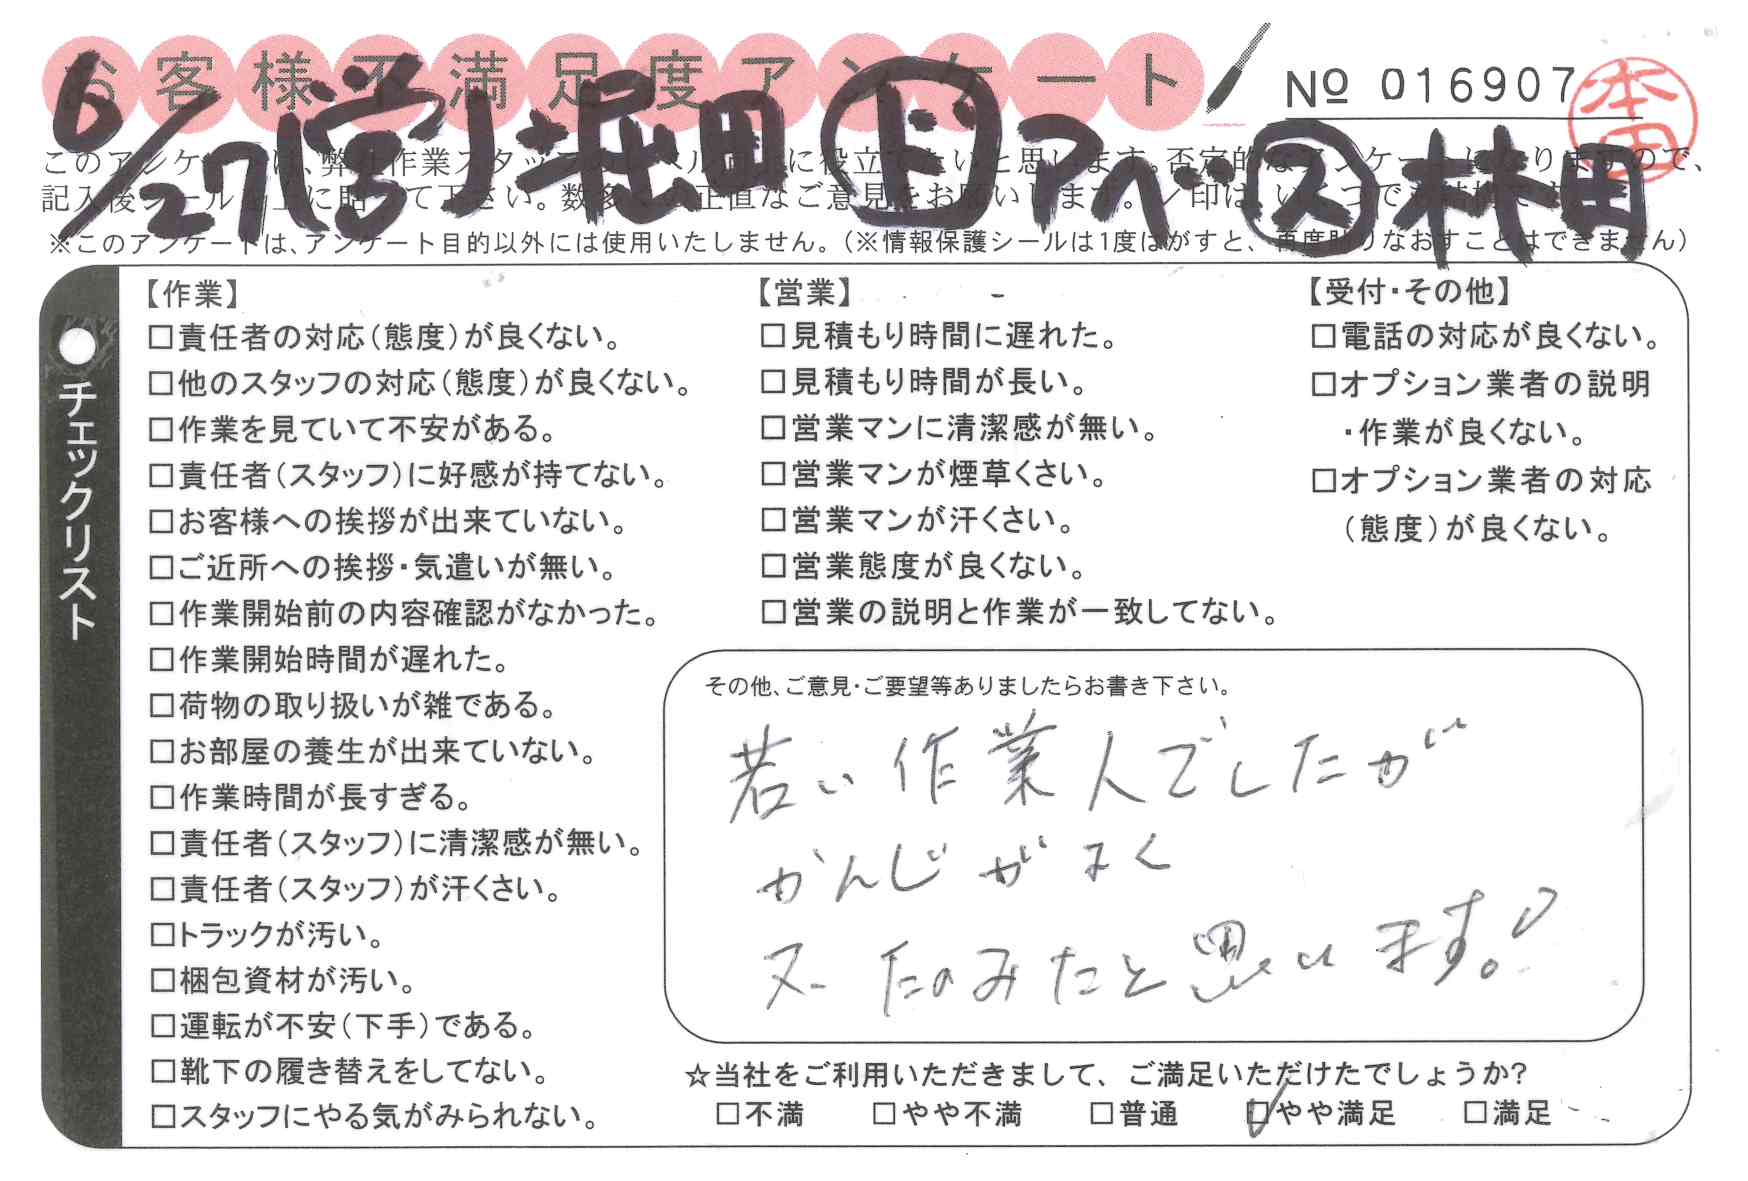 お客様不満足度アンケート
№ 016907
本田
6/27 営 堀田 ド アベ・ス 林田
このアンケートは、弊社作業スタッフのレベル向上に役立てたいと思います。否定的なアンケートになりますので、
記入後シールを上に貼って下さい。数多くの正直なご意見をお願いします。✓印は、いくつでも結構です。
※このアンケートは、アンケート目的以外には使用いたしません。(※情報保護シールは1度はがすと、再度貼りなおすことはできません)
●チェックリスト
【作業】
□責任者の対応(態度)が良くない。
□他のスタッフの対応(態度)が良くない。
□作業を見ていて不安がある。
□責任者(スタッフ)に好感が持てない。
□お客様への挨拶が出来ていない。
□ご近所への挨拶・気遣いが無い。
□作業開始前の内容確認がなかった。
□作業開始時間が遅れた。
□荷物の取り扱いが雑である。
□お部屋の養生が出来ていない。
□作業時間が長すぎる。
□責任者(スタッフ)に清潔感が無い。
□責任者(スタッフ)が汗くさい。
□トラックが汚い。
□梱包資材が汚い。
□運転が不安(下手)である。
□靴下の履き替えをしてない。
□スタッフにやる気がみられない。
【営業】
□見積もり時間に遅れた。
□見積もり時間が長い。
□営業マンに清潔感が無い。
□営業マンが煙草くさい。
□営業マンが汗くさい。
□営業態度が良くない。
□営業の説明と作業が一致してない。
【受付・その他】
□電話の対応が良くない。
□オプション業者の説明
・作業が良くない。
□オプション業者の対応
(態度)が良くない。
その他、ご意見・ご要望等ありましたらお書き下さい。
若い作業人でしたが
かんじがよく
又たのみたと思います。!
☆当社をご利用いただきまして、ご満足いただけたでしょうか?
□不満 □やや不満 □普通 ☑やや満足 □満足